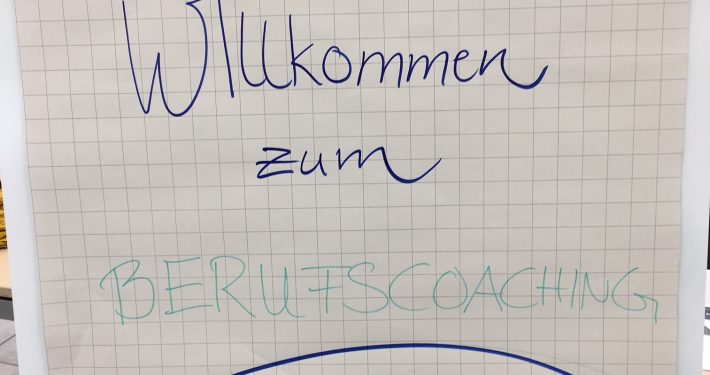 Willkommen
zum
BERUFSCOACHING